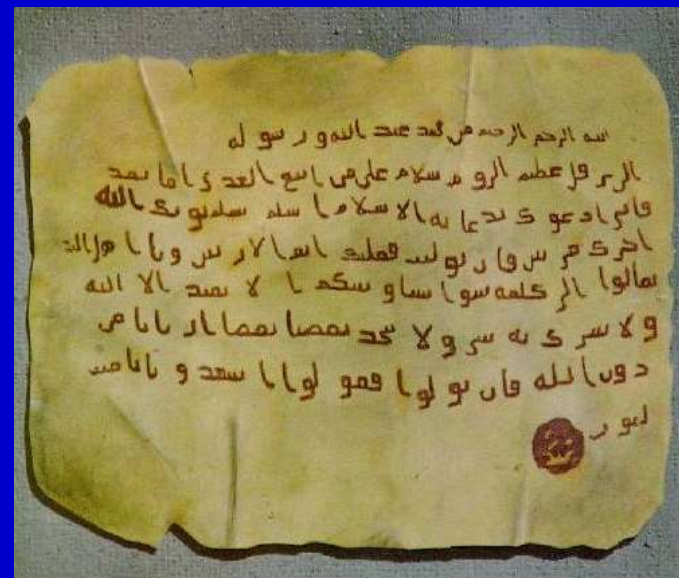 بسم الله الرحمن الرحيم من محمد عبد الله و رسوله
الى هرقل عظيم الروم سلام على من اتبع الهدى اما بعد
فانى ادعوك بدعاية الاسلام اسلم تسلم يؤتك الله
اجرك مرتين فان توليت فعليك اثم الاريسين ويا اهل الكتب
تعالوا الى كلمة سوا بيننا وبينكم ا لا نعبد الا الله
ولا نشرك به شيئا ولا يتخذ بعضنا بعضا اربابا من
دون الله فان تولوا فقولوا اشهدوا بانا مسـ
لمون